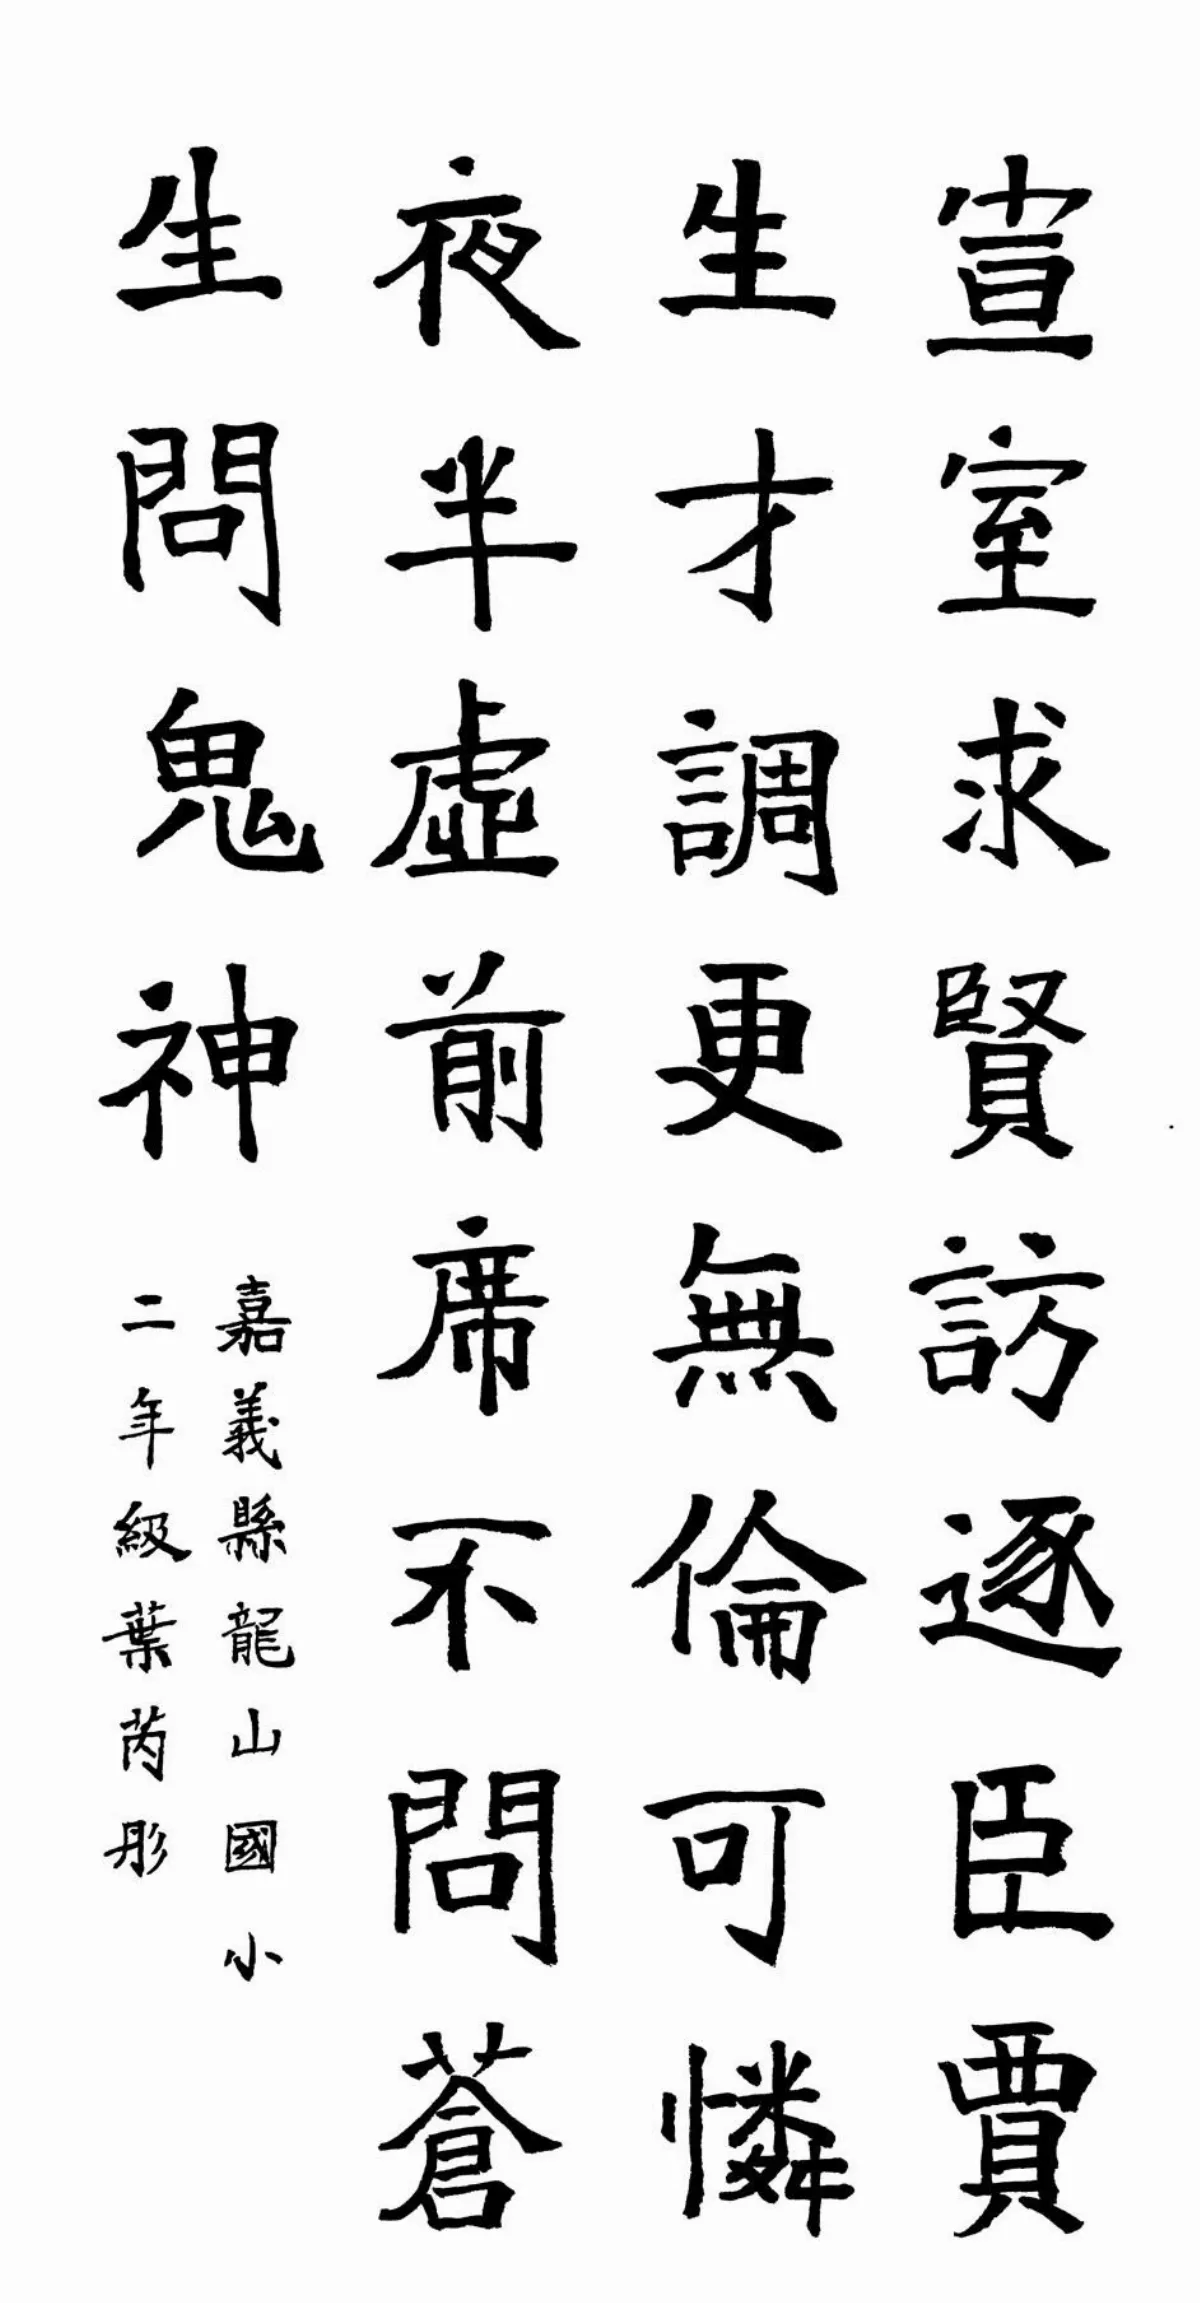 宣室求賢訪逐臣賈
生才調更無倫可憐
夜半虛前席不問蒼
生問鬼神
嘉義縣龍山國小
二年級葉芮彤